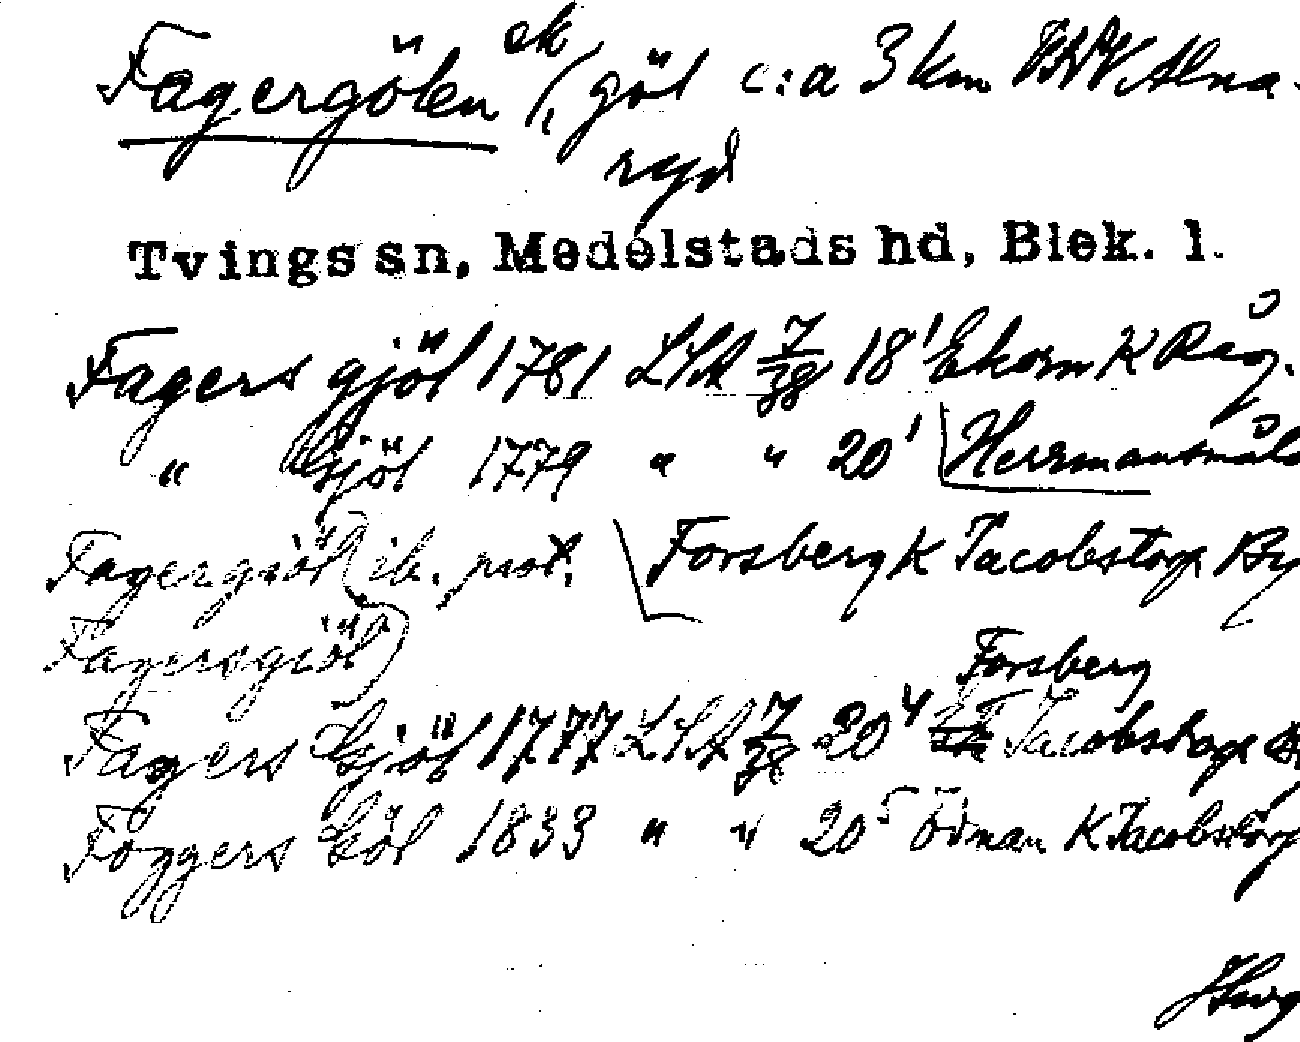 Fagergölen ek (göl c:a 3 km VNV Alna-
ryd
Tvings sn, Medelstads hd, Blek. l.
Fagers gjöl 1781 LSA 7/38 18' Ekorn K Råg.
" Gjöl 1779 " " 20' Herrmansmåla
Fagergiöl ib. prot. Forsberg K Jacobstorp By
Fagersgiöl
Forsberg
Fagers Gjöl 1777 LSA 7/38 20 4 Jacobstorp
Föggers Göl 1833 " " 20 5 Ödman K Jacobstorp